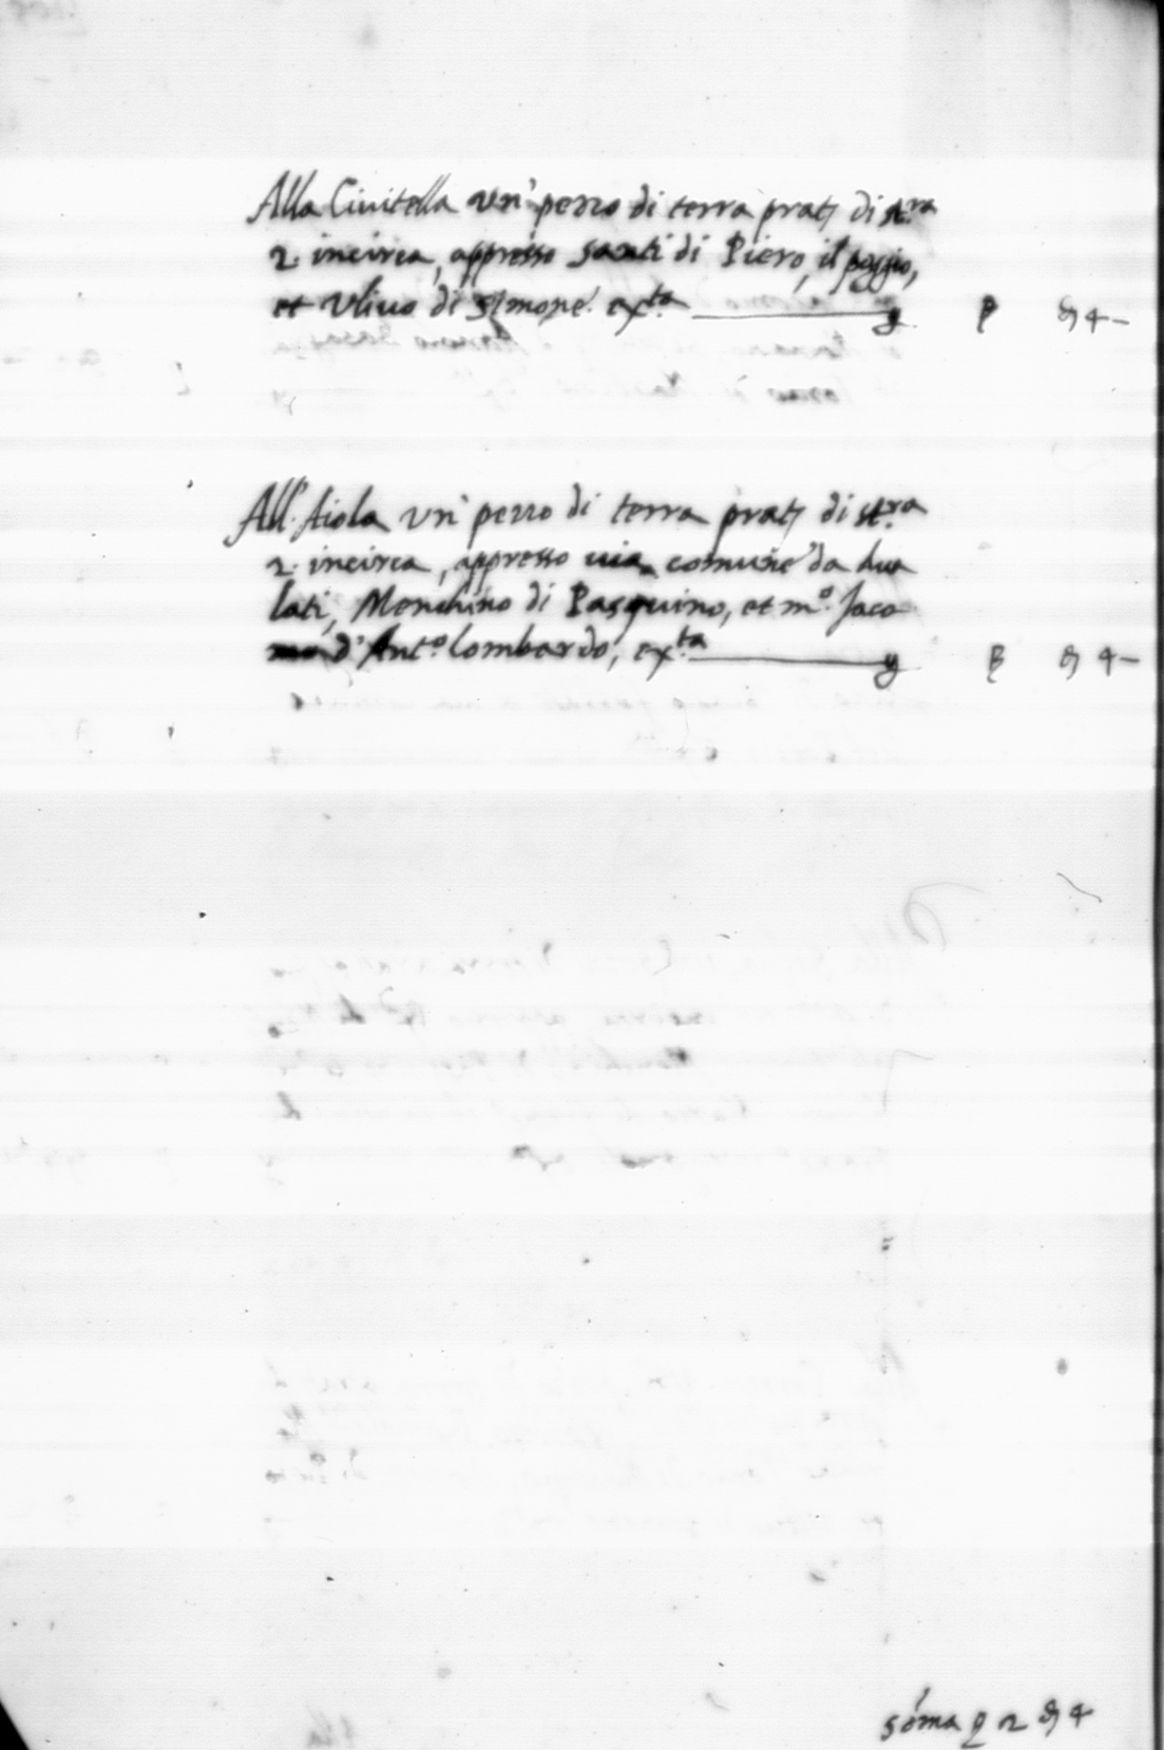 Alla Ciuitella un' pezzo di terra prat; di st.ra
2. incirca, appresso santi di Piero, il poggio,
et Uliuo di Simone. ex.ta
All' Aiola un' pezzo di terra prat; di st.ra
2. incirca, appresso uia comune da dua
lati, Menchino di Pasquino, et m.º Jaco
mo d' Ant.º lombardo, ex.ta
sóma 2 4